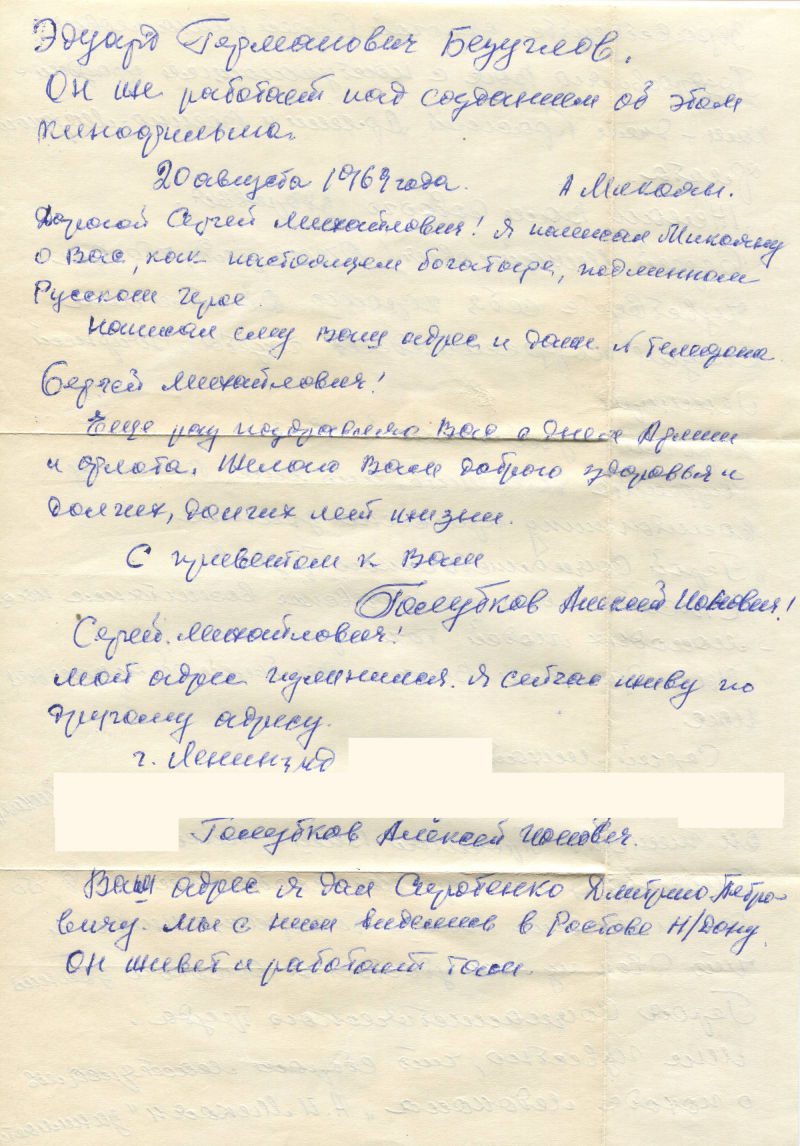 Эдуард Германович Безуглов.
Он же работает над созданием об этом
кинофильма.
20 августа 1969 года. А Микоян.
Дорогой Сергей Михайлович! Я написал Микояну
о Вас, как настоящем богатыре, подлинном
Русском герое.
Написал ему Ваш адрес и даже N телефона.
Сергей Михайлович!
Еще раз поздравляю Вас с Днем Армии
и флота. Желаю Вам доброго здоровья и
долгих, долгих лет жизни.
С приветом к Вам
Голубков Алексей Ионович!
Сергей Михайлович!
мой адрес изменился. Я сейчас живу по
другому адресу.
г. Ленинград
Голубков Алексей Ионович.
Ваш адрес я дал Сиротенко Дмитрию Петро-
вичу. Мы с ним виделись в Ростове Н/Дону.
Он живет и работает там.